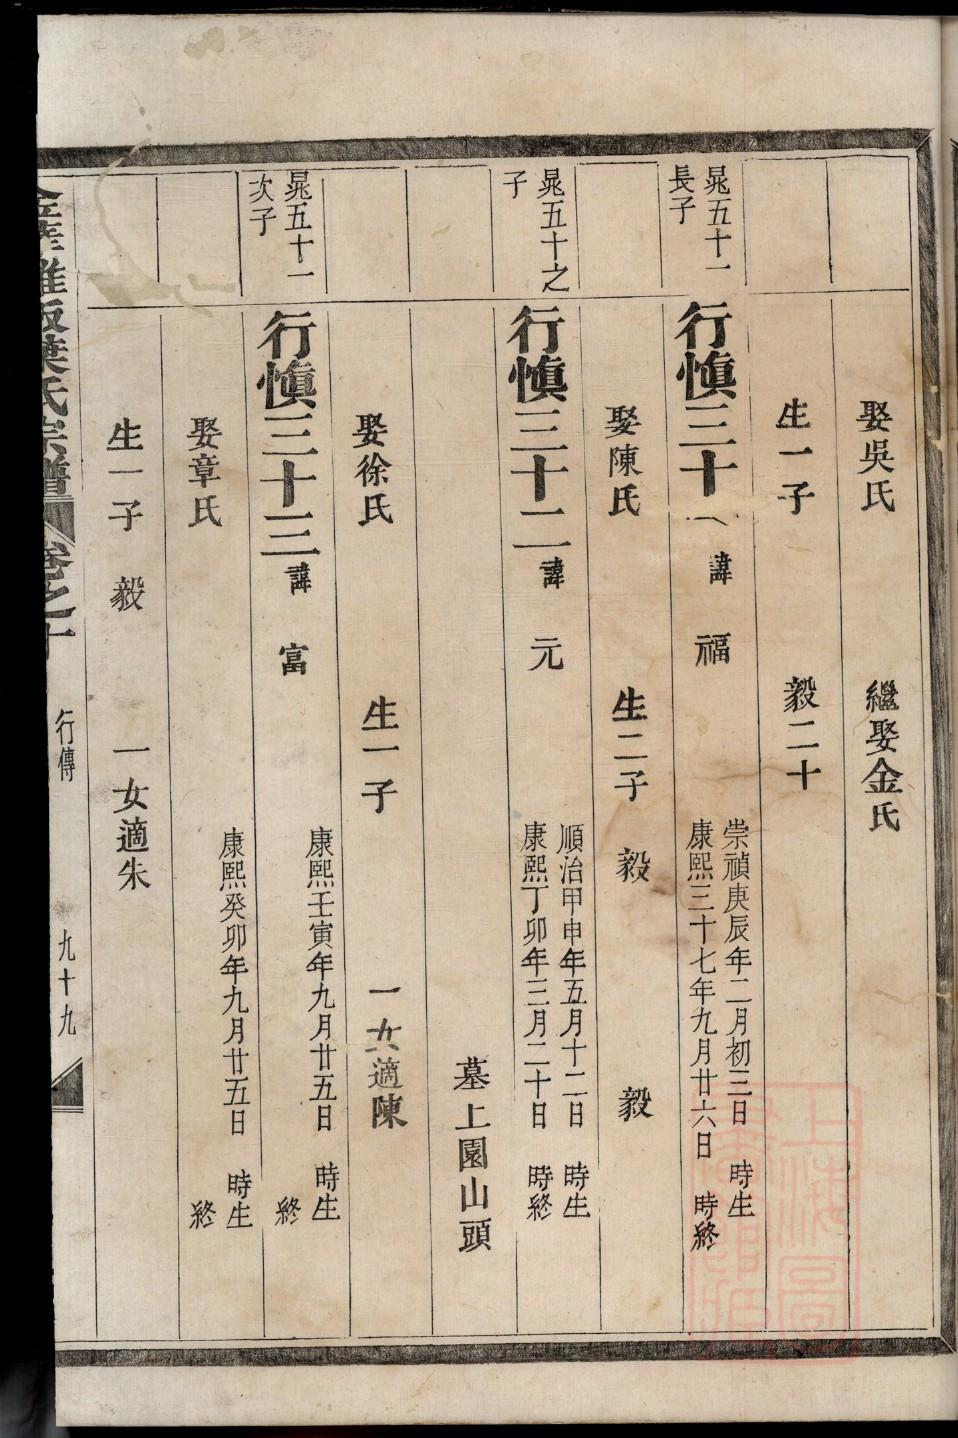 娶吳氏 繼娶金氏
生一子 毅二十
晁五十一長子
行愼三十 諱福 崇禎庚辰年二月初三日 時生
康熙三十七年九月廿六日 時終
娶陳氏 生二子 毅 毅
晁五十之子
行愼三十二 諱元 順治甲申年五月十二日 時生
康熙丁卯年三月二十日 時終
墓上園山頭
娶徐氏 生一子 一女適陳
晁五十一次子
行愼三十三 諱富 康熙壬寅年九月廿五日 時生
終
娶章氏 康熙癸卯年九月廿五日 時生
終
生一子 毅 一女適朱
葉氏宗譜 卷之十 行傳 九十九
上海圖書館藏